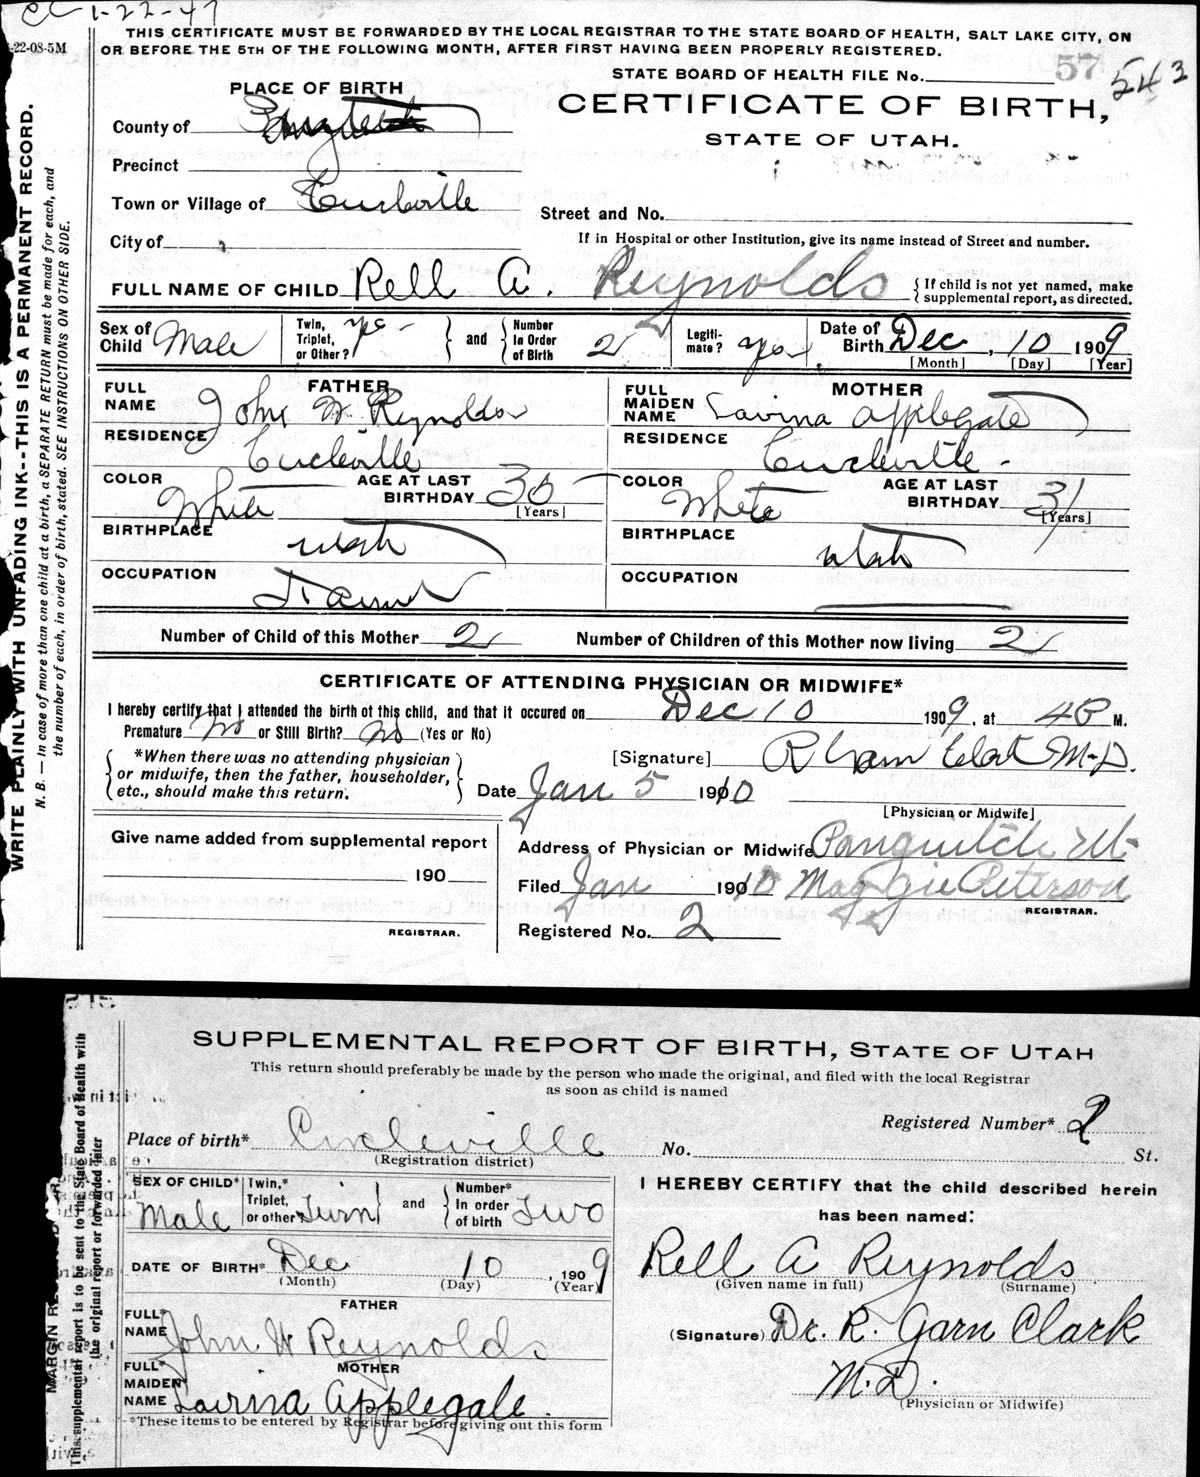 1-22-47
-22-08-5M
THIS CERTIFICATE MUST BE FORWARDED BY THE LOCAL REGISTRAR TO THE STATE BOARD OF HEALTH, SALT LAKE CITY, ON
OR BEFORE THE 5TH OF THE FOLLOWING MONTH, AFTER FIRST HAVING BEEN PROPERLY REGISTERED.
WRITE PLAINLY WITH UNFADING INK--THIS IS A PERMANENT RECORD.
N. B. — In case of more than one child at a birth, a SEPARATE RETURN must be made for each, and
the number of each, in order of birth, stated. SEE INSTRUCTIONS ON OTHER SIDE.
STATE BOARD OF HEALTH FILE No. 57 543
PLACE OF BIRTH
CERTIFICATE OF BIRTH,
STATE OF UTAH.
County of
Precinct
Town or Village of Circleville
Street and No.
City of
If in Hospital or other Institution, give its name instead of Street and number.
FULL NAME OF CHILD Rell A. Reynolds { If child is not yet named, make
supplemental report, as directed.
Sex of Child Male Twin, Triplet, or Other? yes } and { Number In Order of Birth 2 Legiti-mate? yes Date of Birth Dec, 10 1909
[Month] [Day] [Year]
FATHER
FULL NAME John W. Reynolds
MOTHER
FULL MAIDEN NAME Lavina Applegate
RESIDENCE Circleville
RESIDENCE Circleville -
COLOR White AGE AT LAST BIRTHDAY 35 [Years]
COLOR White AGE AT LAST BIRTHDAY 31 [Years]
BIRTHPLACE utah
BIRTHPLACE utah
OCCUPATION Farmer
OCCUPATION
Number of Child of this Mother 2 Number of Children of this Mother now living 2
CERTIFICATE OF ATTENDING PHYSICIAN OR MIDWIFE*
I hereby certify that I attended the birth of this child, and that it occured on Dec 10 1909, at 4 P M.
Premature No or Still Birth? No (Yes or No)
{ *When there was no attending physician
or midwife, then the father, householder,
etc., should make this return. }
[Signature] R Garn Clark M.D.
Date Jan 5 1910
[Physician or Midwife]
Give name added from supplemental report
190
REGISTRAR.
Address of Physician or Midwife Panguitch Ut
Filed Jan 1910 Maggie Peterson
REGISTRAR.
Registered No. 2
SUPPLEMENTAL REPORT OF BIRTH, STATE OF UTAH
This return should preferably be made by the person who made the original, and filed with the local Registrar
as soon as child is named
Registered Number* 2
Place of birth* Circleville No. St.
(Registration district)
SEX OF CHILD* Male Twin,* Triplet, or other Twin } and { Number* In order of birth Two
DATE OF BIRTH* Dec 10, 1909
(Month) (Day) (Year)
FATHER
FULL* NAME John W Reynolds
MOTHER
FULL* MAIDEN NAME Lavina Applegate.
*These items to be entered by Registrar before giving out this form
I HEREBY CERTIFY that the child described herein
has been named:
Rell A Reynolds
(Given name in full) (Surname)
(Signature) Dr. R. Garn Clark
M.D.
(Physician or Midwife)
This supplemental report is to be sent to the State Board of Health with
the original report or forwarded later